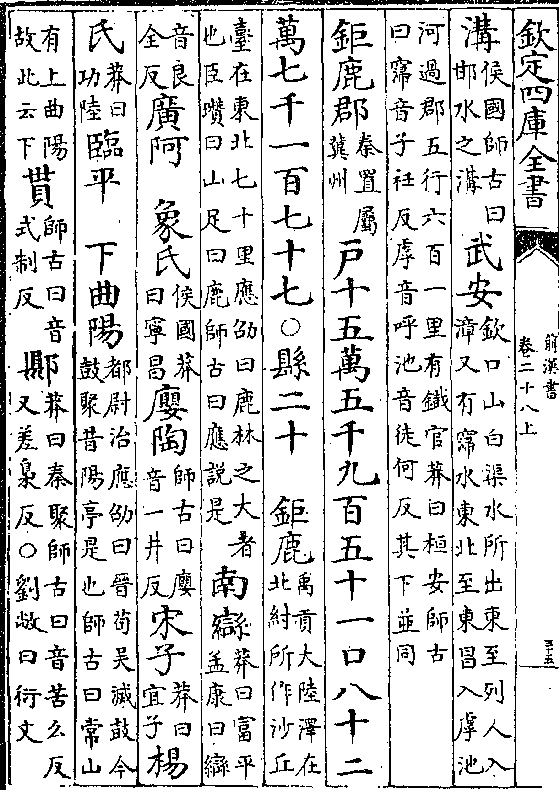 欽定四庫全書
前漢書
卷二十八上
三五
溝侯國師古曰邯水之溝武安欽口山白渠水所出東至列人入漳又有寖水東北至東昌入虖池
河過郡五行六百一里有鐵官莽曰桓安師古曰寖音子袵反虖音呼池音徒何反其下並同
鉅鹿郡秦置屬冀州戶十五萬五千九百五十一口八十二
萬七千一百七十七○縣二十 鉅鹿禹貢大陸澤在北紂所作沙丘
臺在東北七十里應劭曰鹿林之大者也臣瓚曰山足曰鹿師古曰應說是南䜌莽曰富平孟康曰䜌
音良全反廣阿 象氏侯國莽曰寧昌廮陶師古曰廮音一井反宋子莽曰宜子楊
氏莽曰功陸臨平 下曲陽都尉治應劭曰晉荀吳滅鼓今鼓聚昔陽亭是也師古曰常山
有上曲陽故此云下貰師古曰音式制反鄡莽曰秦聚師古曰音苦么反又差梟反○劉攽曰衍文